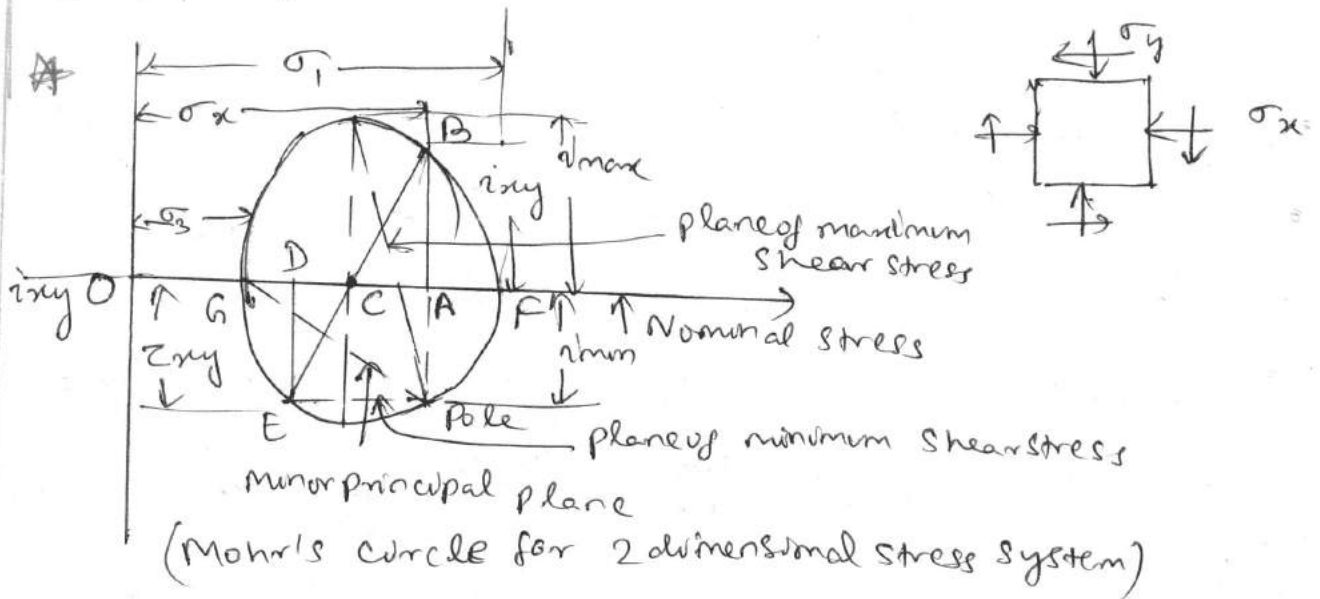 σ1
σx
σy
σx
B
τmax
τxy
σ3
plane of maximum
shear stress
D
τxy O
G
C
A
F
τxy
τmin
Nominal stress
E
Pole
plane of minimum shear stress
Minor principal plane
(Mohr's circle for 2 dimensional stress system)